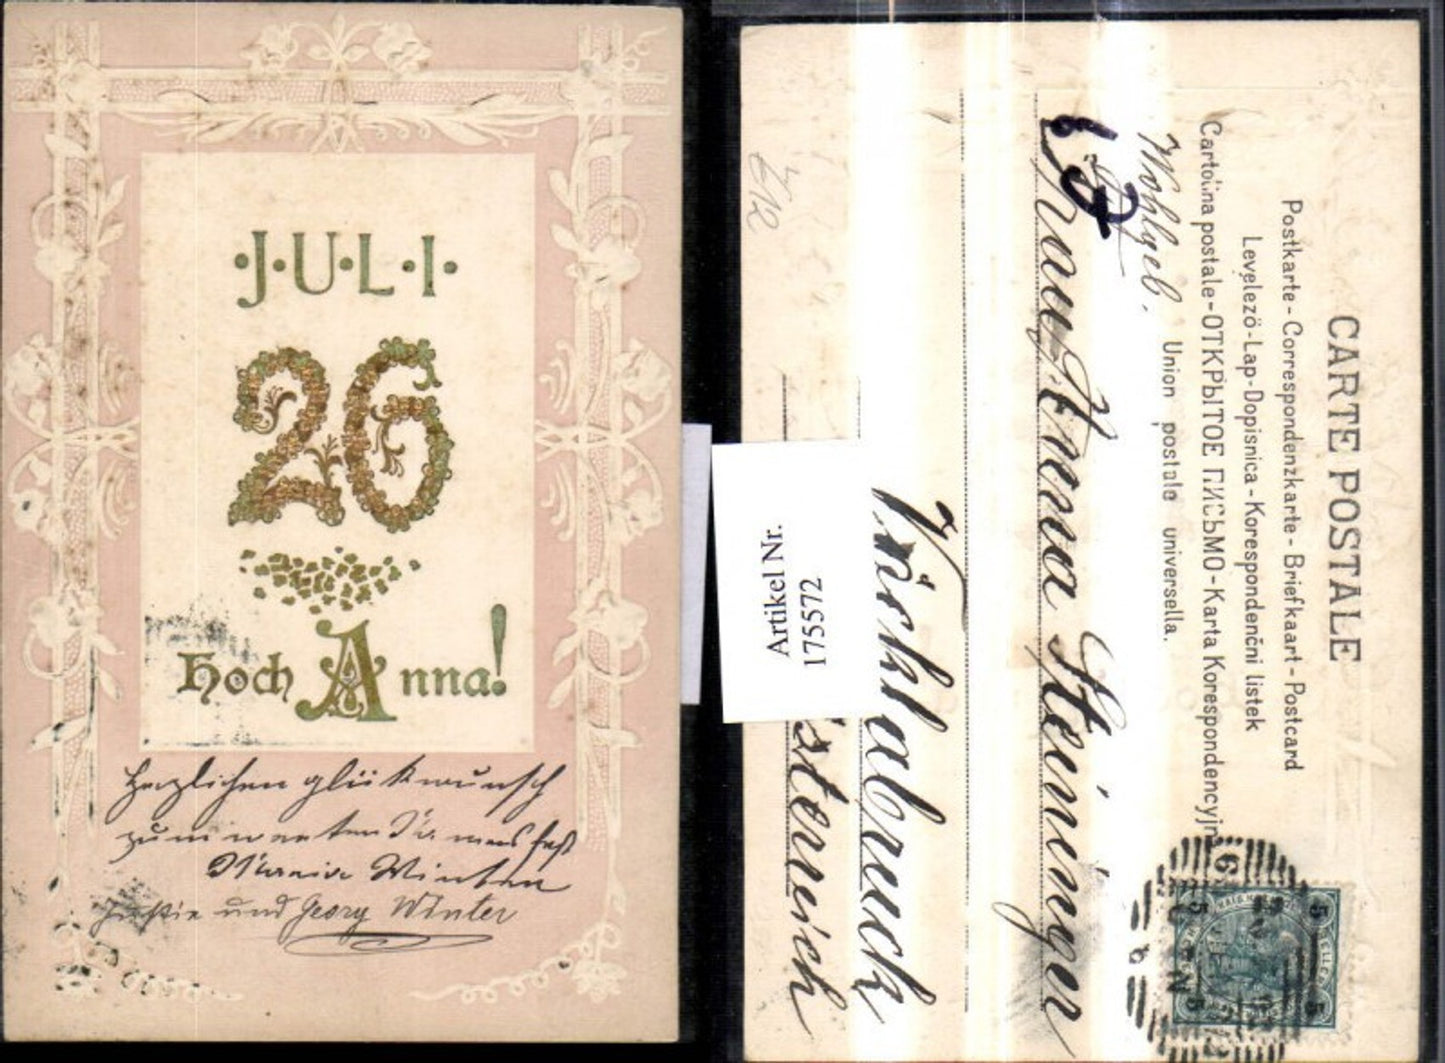 ·J·U·L·I·
26
Hoch Anna!
Herzlichen Glückwunsch
zum werten Namensfest
Maria Winter
und Georg Winter
CARTE POSTALE
Postkarte - Correspondenzkarte - Briefkaart - Postcard
Levelezö-Lap-Dopisnica-Korespondenčni listek
Cartolina postale-ОТКРЫТОЕ ПИСЬМО-Karta Korespondencyjna
Union postale universella.
Wohlgeb.
Frau Anna Steininger
Vöcklabruck
Österreich
Artikel Nr.
175572